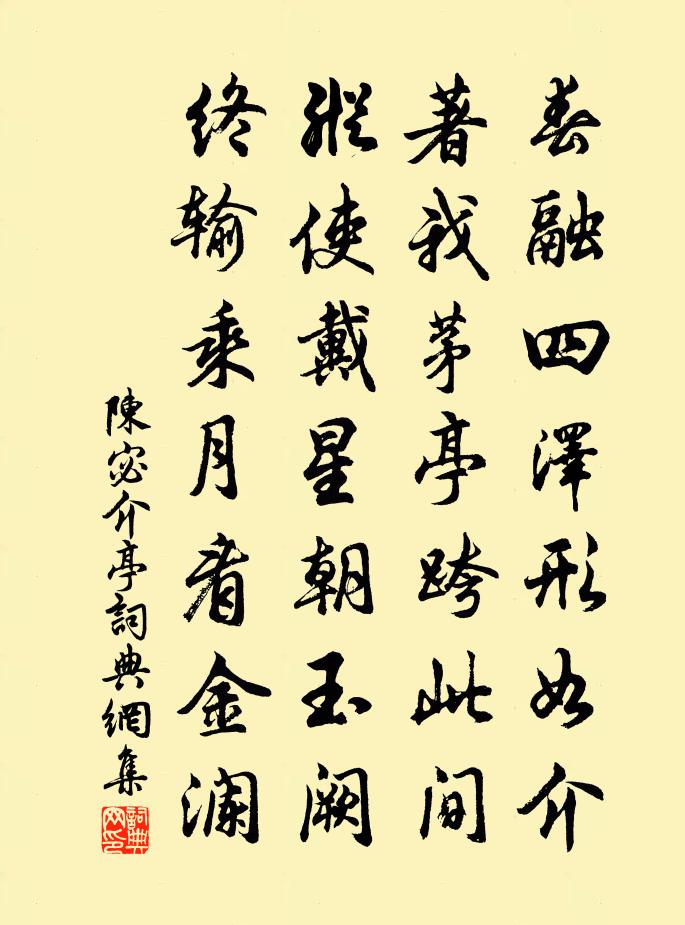 春融四澤形如介
著我茅亭跨此間
縱使戴星朝玉闕
終輸乘月看金瀾
陳宓介亭詞典網集
詞典網印